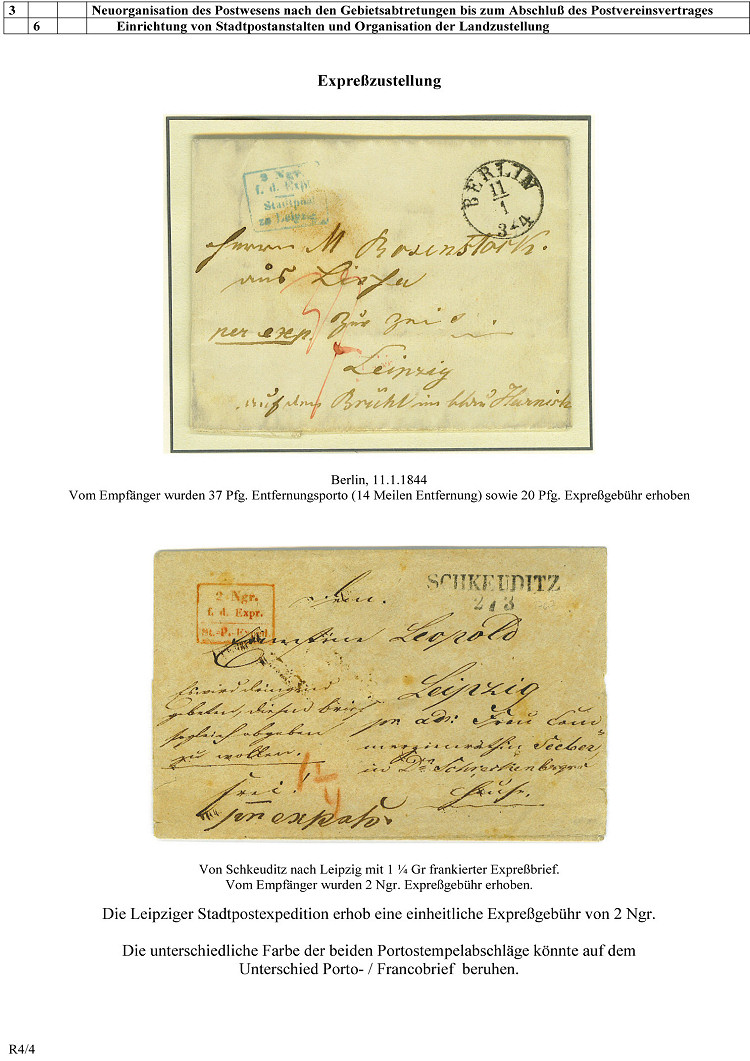 3 Neuorganisation des Postwesens nach den Gebietsabtretungen bis zum Abschluß des Postvereinsvertrages
6 Einrichtung von Stadtpostanstalten und Organisation der Landzustellung
Expreßzustellung
2 Ngr.
f. d. Expr.
Stadtpost
zu Leipzig
BERLIN
11
1
3-4
Herrn M Rosenstock.
aus Lissa
per exp. zur Zei
Leipzig
auf dem Brühl im blau Harnisch
Berlin, 11.1.1844
Vom Empfänger wurden 37 Pfg. Entfernungsporto (14 Meilen Entfernung) sowie 20 Pfg. Expreßgebühr erhoben
2 Ngr.
f. d. Expr.
St.-P.
SCHKEUDITZ
2 / 3
Leopold
Leipzig
Es wird dringend
gebeten, diesen Brief
sogleich abgeben
zu wollen.
pr adr: Frau Com=
merzienräthin
in Dr Schreckenbergers
Hause.
frei!
Von Schkeuditz nach Leipzig mit 1 ¼ Gr frankierter Expreßbrief.
Vom Empfänger wurden 2 Ngr. Expreßgebühr erhoben.
Die Leipziger Stadtpostexpedition erhob eine einheitliche Expreßgebühr von 2 Ngr.
Die unterschiedliche Farbe der beiden Portostempelabschläge könnte auf dem
Unterschied Porto- / Francobrief beruhen.
R4/4